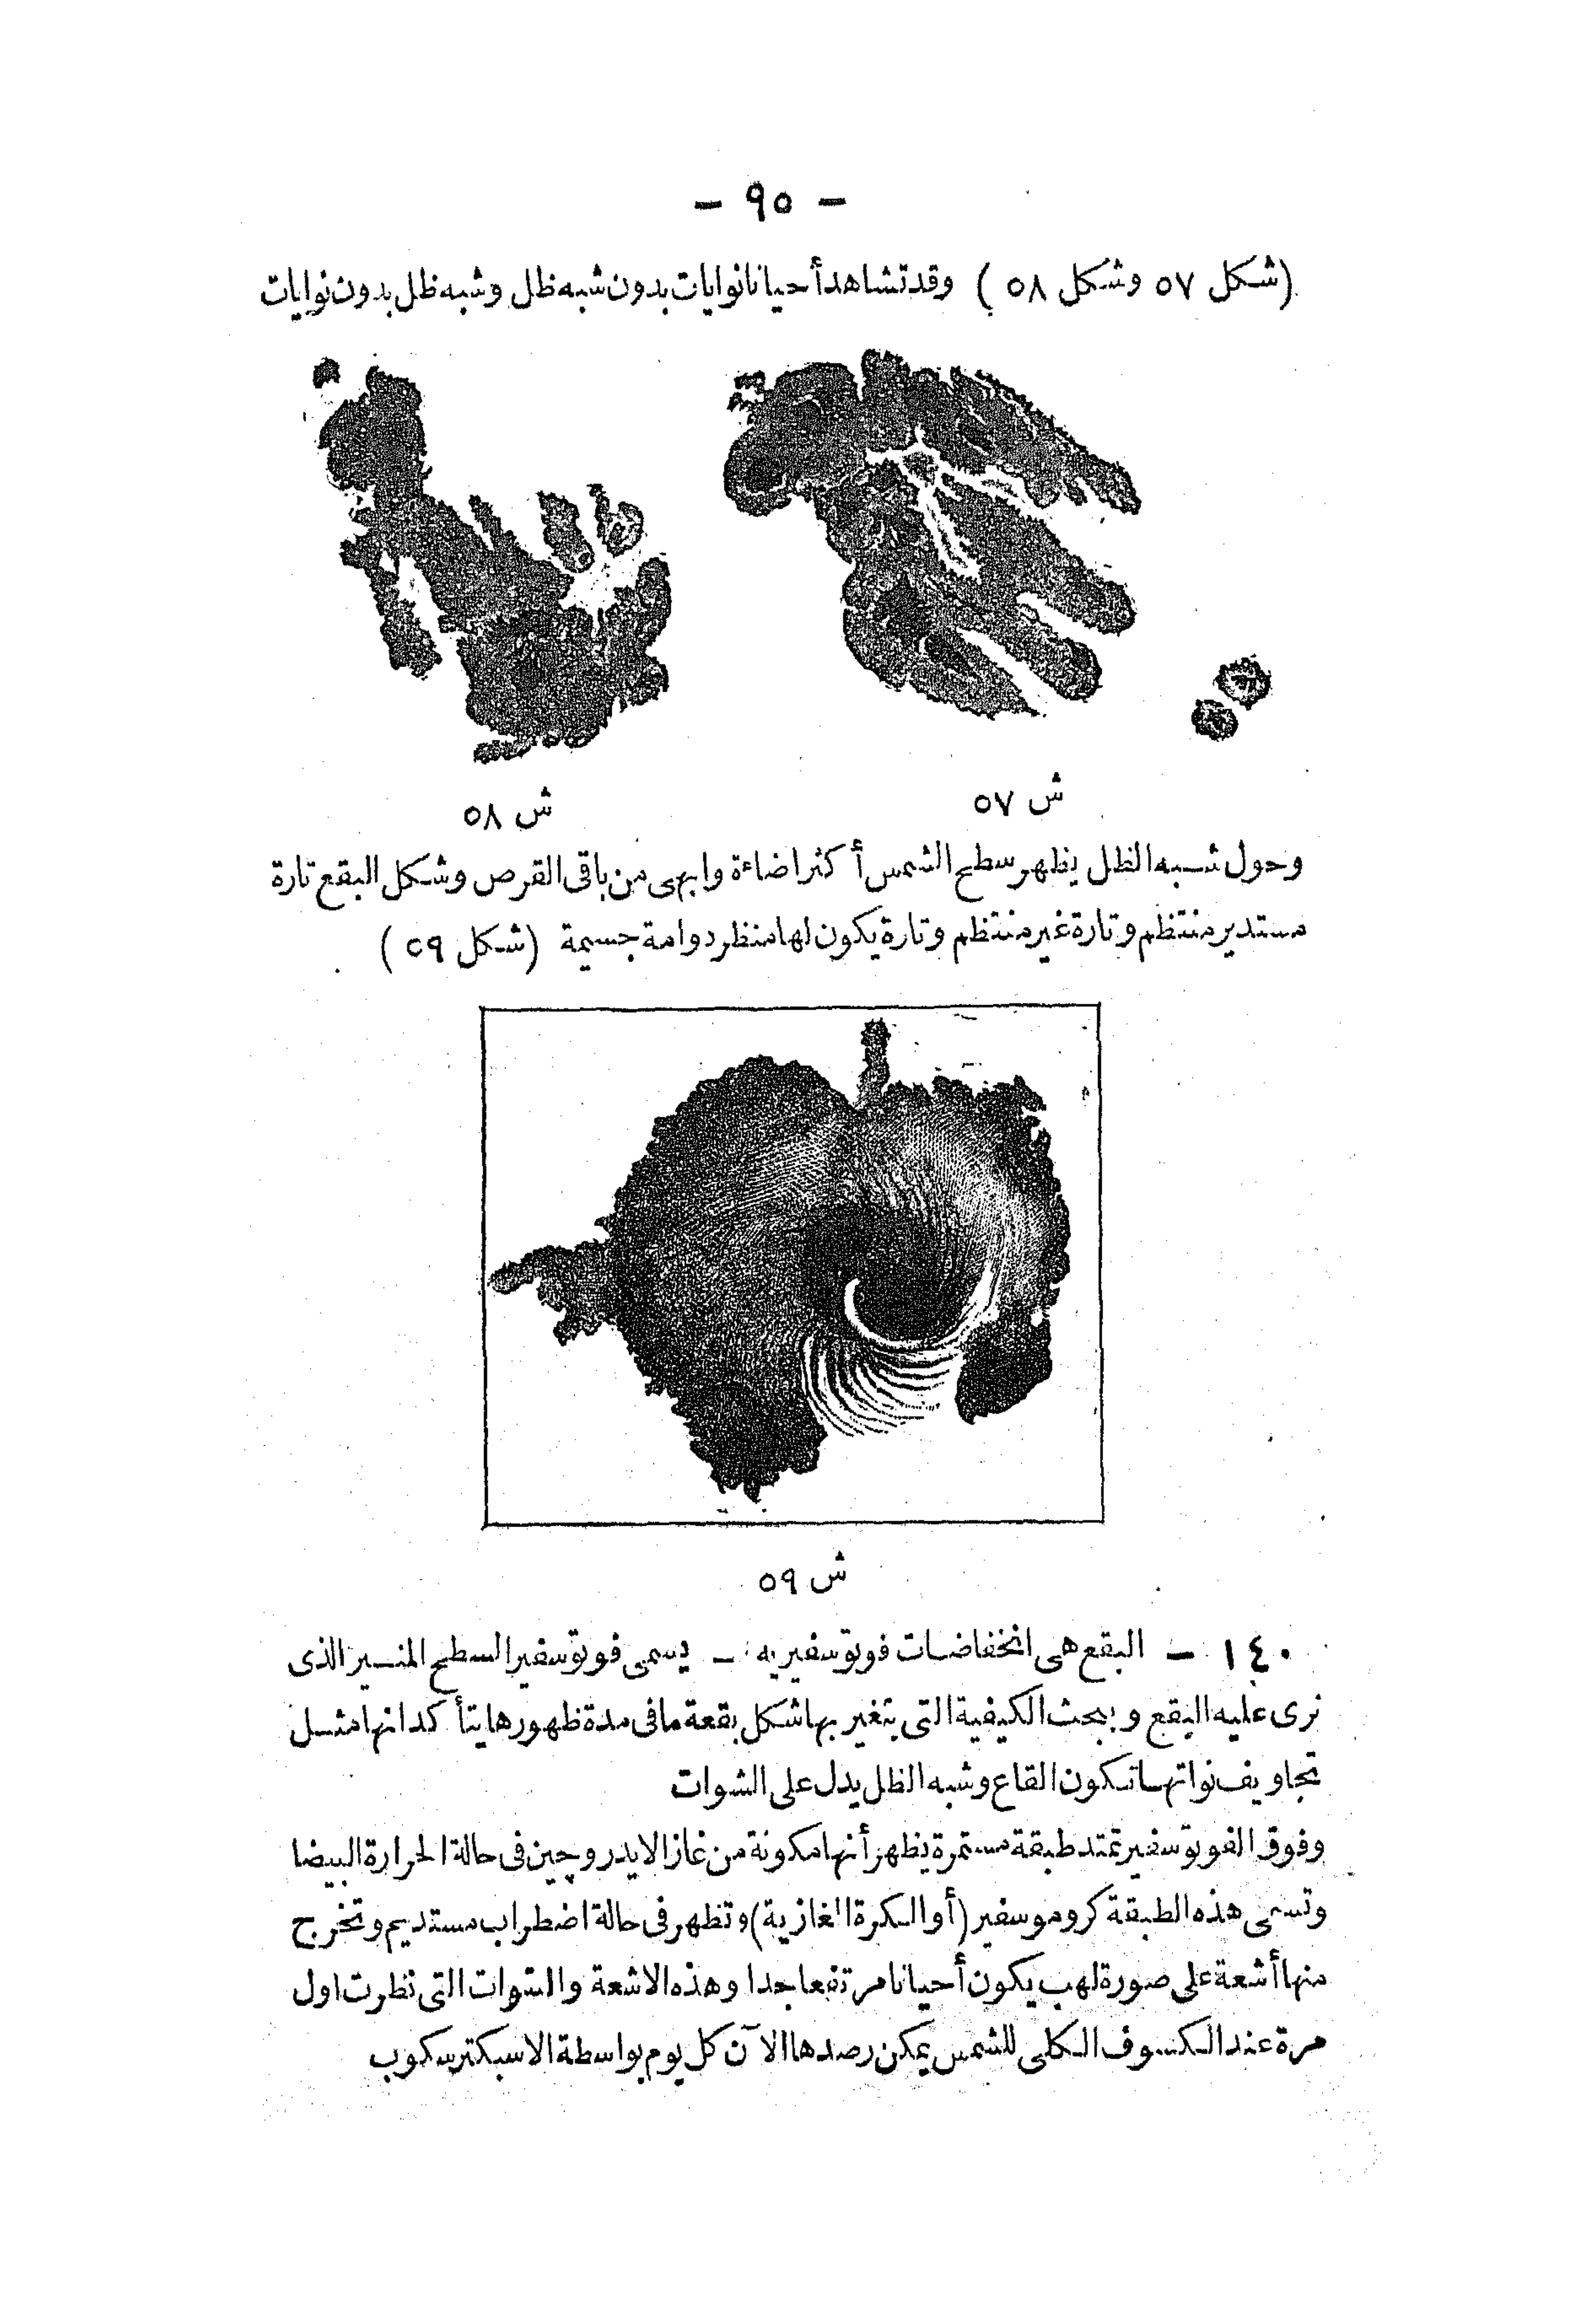 - ٩٥ -
(شكل ٥٧ وشكل ٥٨) وقد تشاهد أحيانا نوايات بدون شبه ظل وشبه ظل بدون نوايات
ش ٥٧
ش ٥٨
وحول شبه الظل يظهر سطح الشمس أكثر اضاءة وابهى من باقى القرص وشكل البقع تارة
مستدير منتظم وتارة غير منتظم وتارة يكون لها منظر دوامة جسيمة (شكل ٥٩)
ش ٥٩
١٤٠ - البقع هى انخفاضات فوتوسفيريه - يسمى فوتوسفير السطح المنير الذى
نرى عليه البقع وبحث الكيفية التى يتغير بها شكل بقعة ما فى مدة ظهورها يتأكد انها مثل
تجاويف نواتها تكون القاع وشبه الظل يدل على الشوات
وفوق الفوتوسفير تمتد طبقة مستمرة يظهر أنها مكونة من غاز الايدروچين فى حالة الحرارة البيضا
وتسمى هذه الطبقة كروموسفير (أو الكرة الغازية) وتظهر فى حالة اضطراب مستديم وتخرج
منها أشعة على صورة لهب يكون أحيانا مرتفعا جدا وهذه الاشعة والشوات التى نظرت اول
مرة عند الكسوف الكلى للشمس يمكن رصدها الآن كل يوم بواسطة الاسبكترسكوب